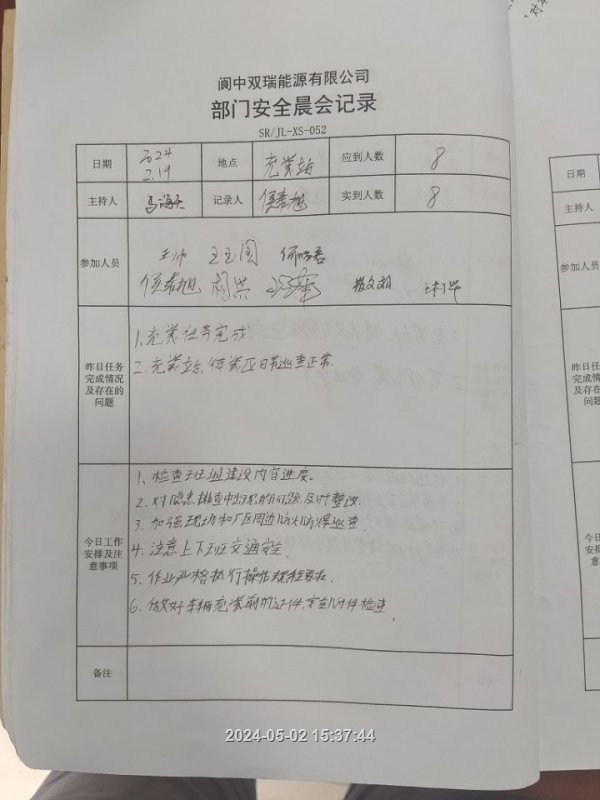 阆中双瑞能源有限公司
部门安全晨会记录
SR/JL-XS-052
日期 2024 2.19 地点 充装站 应到人数 8
主持人 记录人 侯春旭 实到人数 8
参加人员
侯春旭
昨日任务完成情况及存在的问题
1、充装任务完成
2、充装站、储装区日常巡查正常.
今日工作安排及注意事项
1、检查班组建设内容进度。
2、对隐患排查中出现的问题及时整改.
3、加强现场和厂区周边防火防爆巡查.
4、注意上下班交通安全.
5、作业严格执行操作规程要求.
6、做好车辆充装前的证件、安全附件检查
备注
日期
主持人
参加人员
2024-05-02 15:37:44